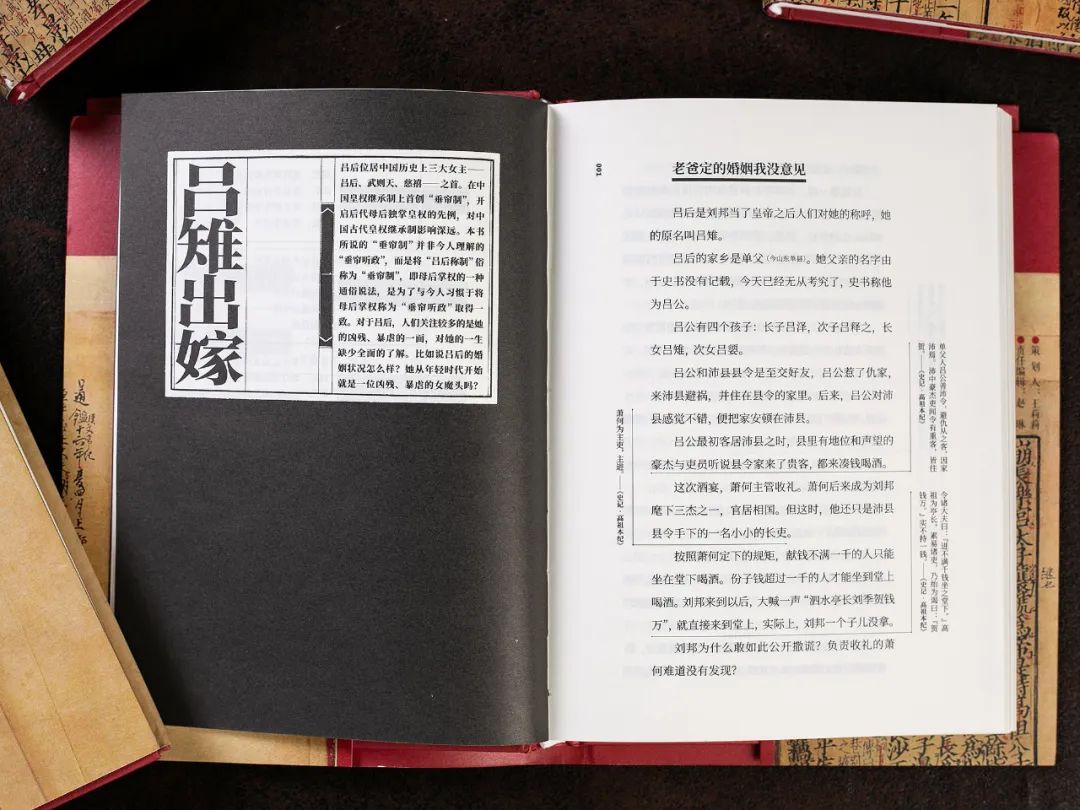 吕雉出嫁
一
吕后位居中国历史上三大女主——
吕后、武则天、慈禧——之首。在中
国皇权继承制上首创“垂帘制”,开
启后代母后独掌皇权的先例,对中
国古代皇权继承制影响深远。本书
所说的“垂帘制”并非今人理解的
“垂帘听政”,而是将“吕后称制”俗
称为“垂帘制”,即母后掌权的一种
通俗说法,是为了与今人习惯于将
母后掌权称为“垂帘听政”取得一
致。对于吕后,人们关注较多的是她
的凶残、暴虐的一面,对她的一生
缺少全面的了解。比如说吕后的婚
姻状况怎么样?她从年轻时代开始
就是一位凶残、暴虐的女魔头吗?
001
老爸定的婚姻我没意见
吕后是刘邦当了皇帝之后人们对她的称呼,她
的原名叫吕雉。
吕后的家乡是单父(今山东单县)。她父亲的名字由
于史书没有记载,今天已经无从考究了,史书称他
为吕公。
吕公有四个孩子:长子吕泽,次子吕释之,长
女吕雉,次女吕媭。
吕公和沛县县令是至交好友,吕公惹了仇家,
来沛县避祸,并住在县令的家里。后来,吕公对沛
县感觉不错,便把家安顿在沛县。
吕公最初客居沛县之时,县里有地位和声望的
豪杰与吏员听说县令家来了贵客,都来凑钱喝酒。
这次酒宴,萧何主管收礼。萧何后来成为刘邦
麾下三杰之一,官居相国。但这时,他还只是沛县
县令手下的一名小小的长吏。
按照萧何定下的规矩,献钱不满一千的人只能
坐在堂下喝酒。份子钱超过一千的人才能坐到堂上
喝酒。刘邦来到以后,大喊一声“泗水亭长刘季贺钱
万”,就直接来到堂上,实际上,刘邦一个子儿没拿。
刘邦为什么敢如此公开撒谎?负责收礼的萧
何难道没有发现?
单父人吕公善沛令,避仇从之客,因家
沛焉。沛中豪杰吏闻令有重客,皆往
贺。——《史记·高祖本纪》
萧何为主吏,主进。——《史记·高祖本纪》
令诸大夫曰:“进不满千钱坐之堂下。”高
祖为亭长,素易诸吏,乃绐为谒曰:“贺
钱万。”实不持一钱。——《史记·高祖本纪》
策划人:王莉莉
责任编辑:赵琳